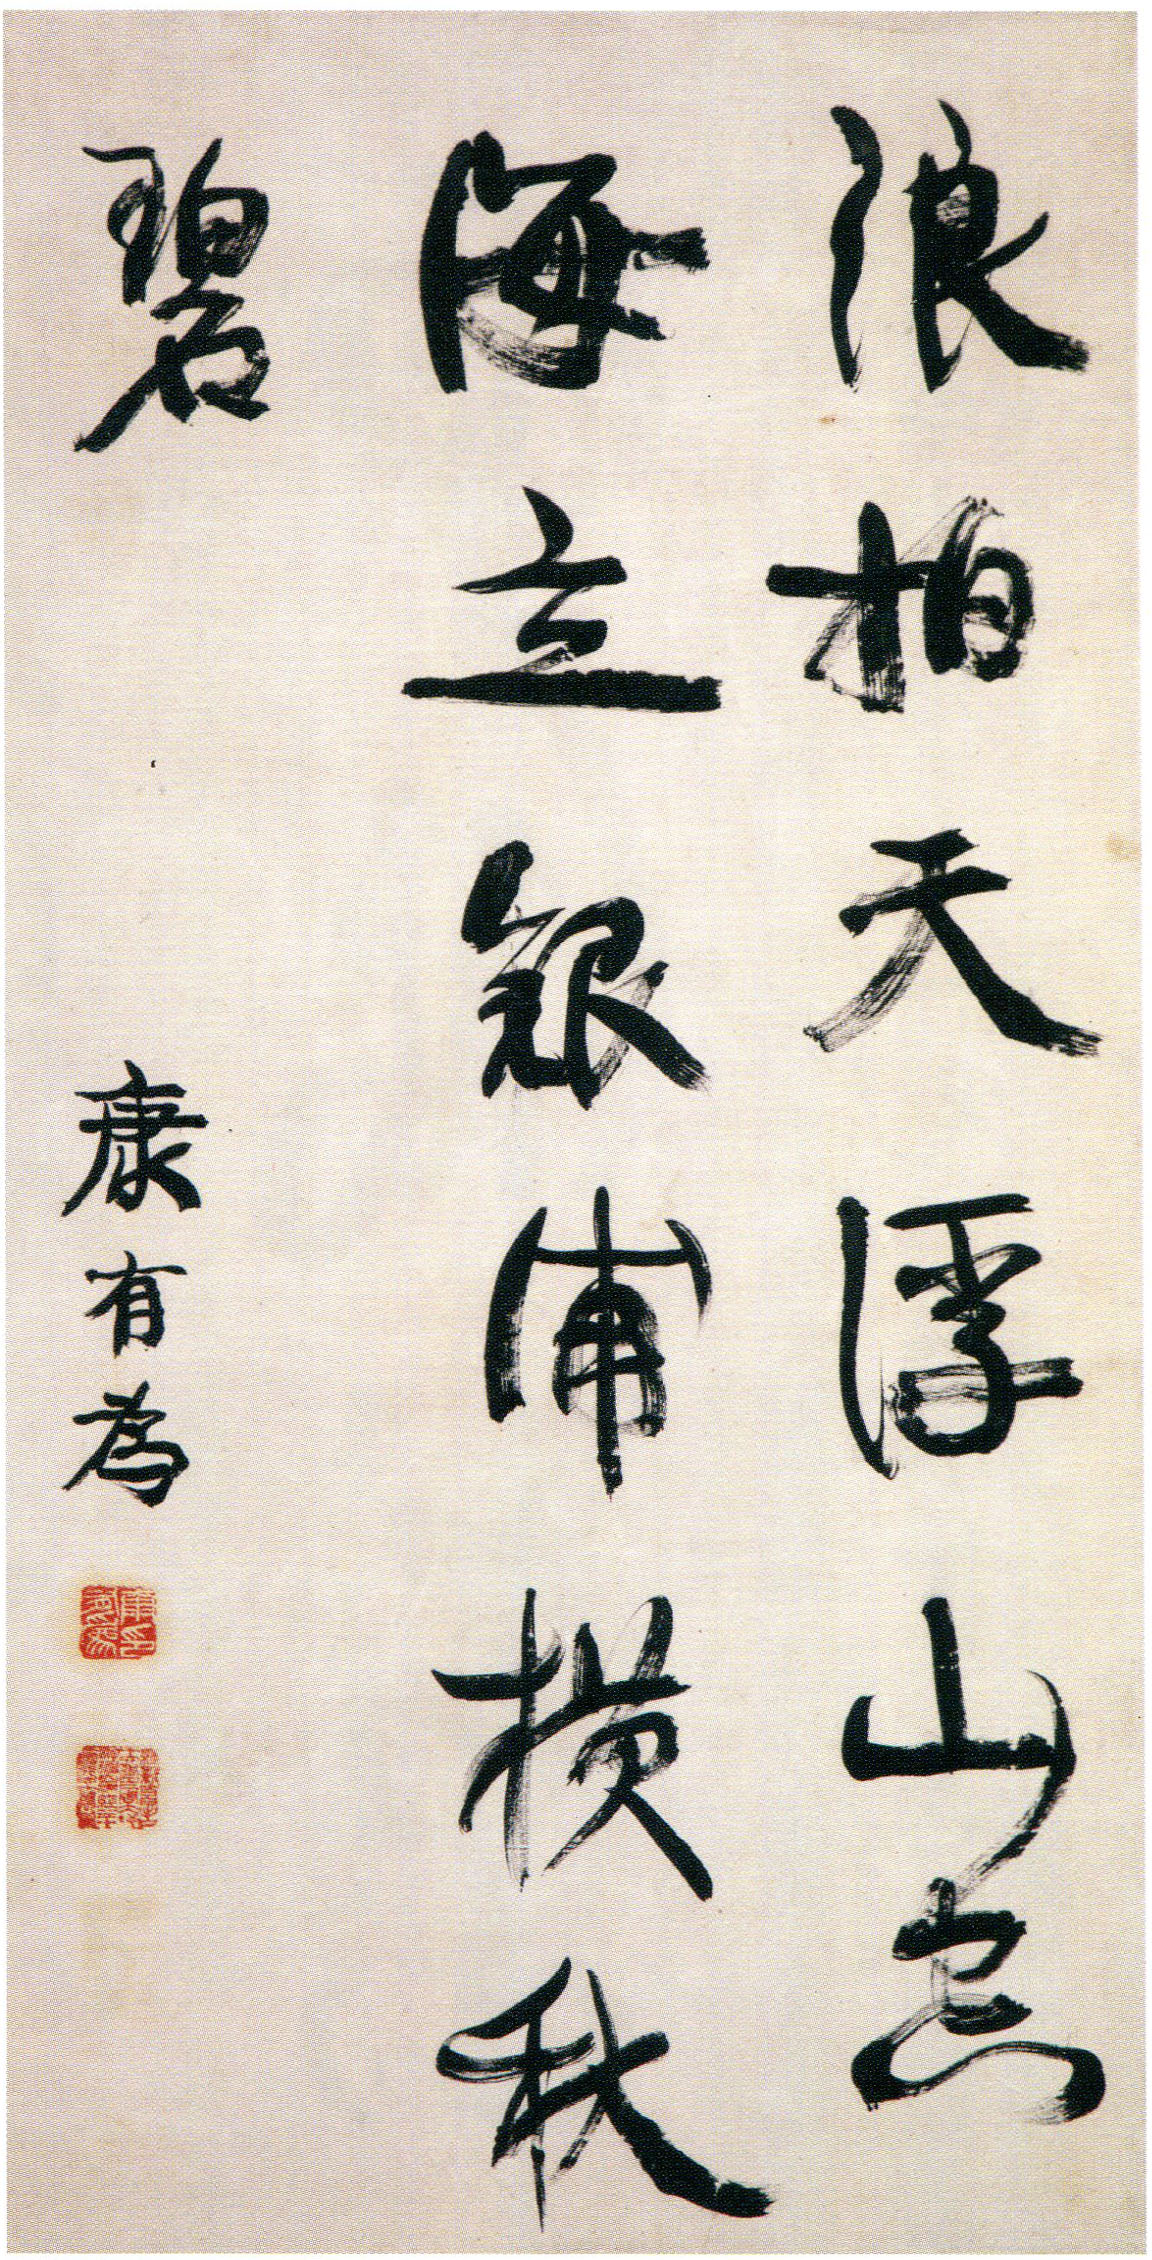 浪拍天浮山点
海立銀甫横秋
碧
康有為